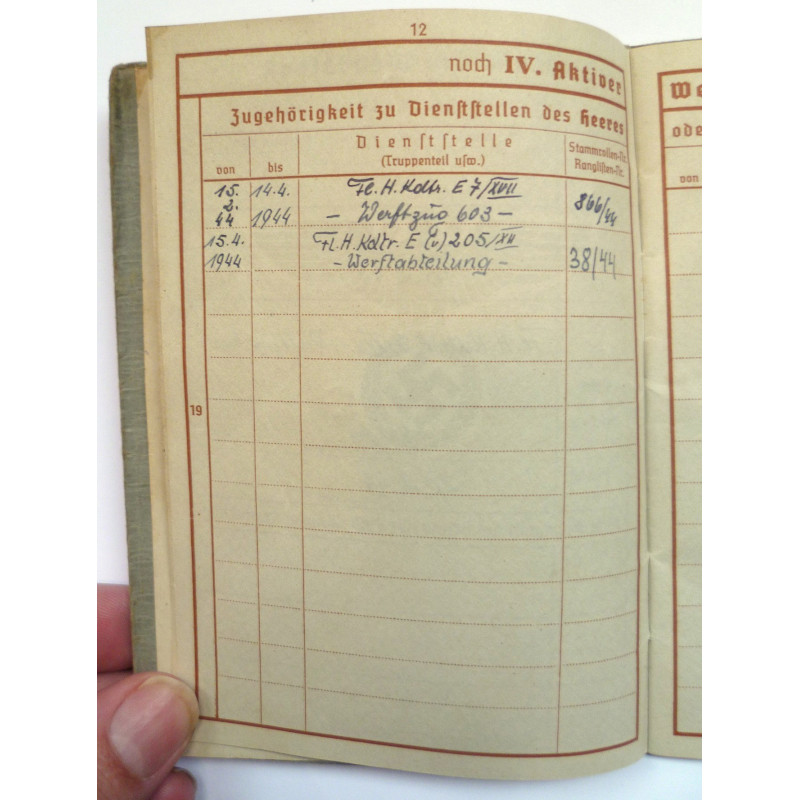 12
noch IV. Aktiver
Zugehörigkeit zu Dienststellen des Heeres
von bis Dienststelle (Truppenteil usw.) Stammrollen-Nr. Ranglisten-Nr.
15. 2. 44 14.4. 1944 Fl. H. Kdtr. E 7/XVII 866/44
- Werftzug 603 -
15.4. 1944 Fl. H. Kdtr. E (v) 205/XII 38/44
- Werftabteilung -
19
We
ode
von